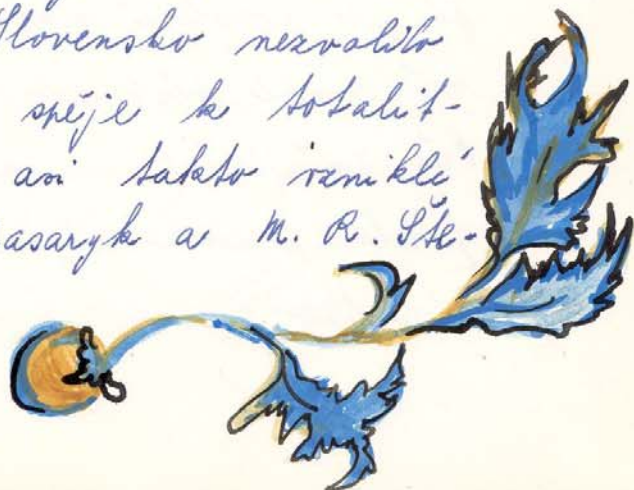 Slovensko nezvolilo
spěje k totalit-
asi takto vzniklé
asaryk a M. R. Šte-